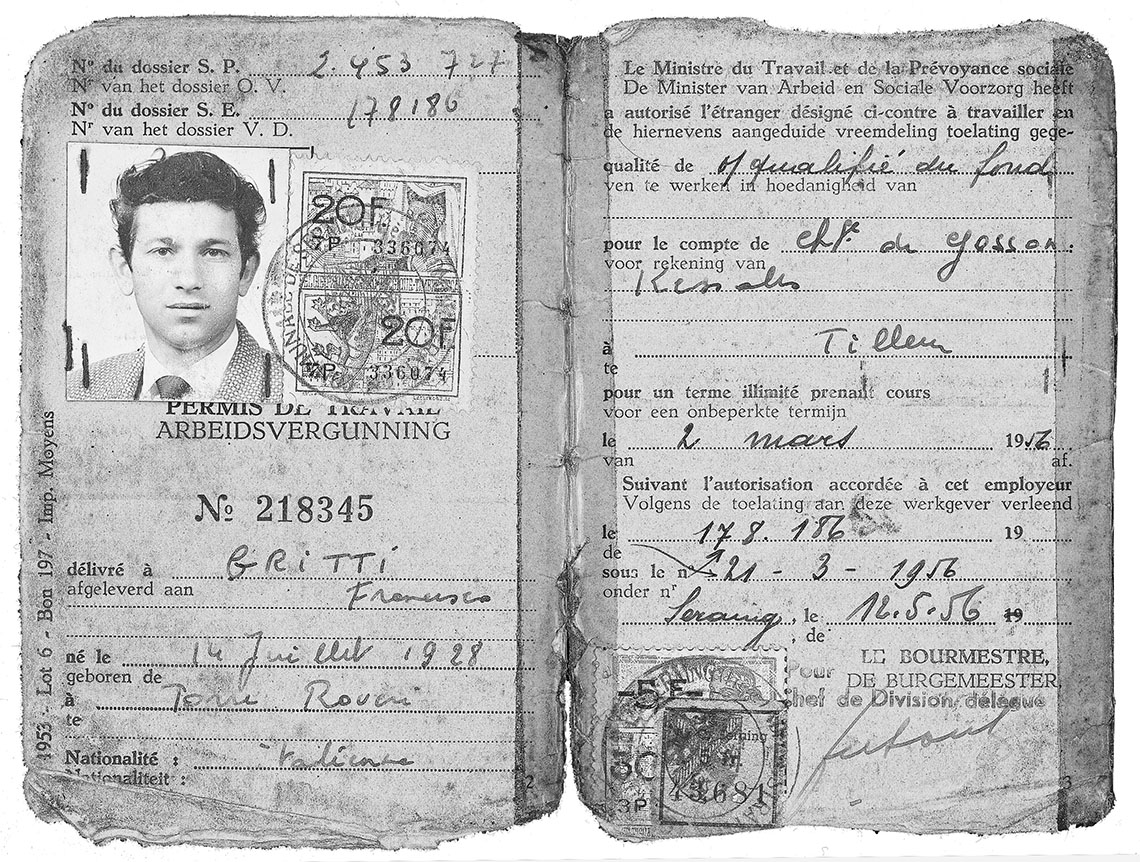 Nº du dossier S. P. 2.453 727
Nʳ van het dossier O. V.
Nº du dossier S. E. 178186
Nʳ van het dossier V. D.
20F
7P 336074
20F
7P 336074
PERMIS DE TRAVAIL
ARBEIDSVERGUNNING
Nº 218345
délivré à GRITTI
afgeleverd aan Francesco
né le 14 Juillet 1928
geboren de
à Torre
te
Nationalité : italienne
Nationaliteit :
2
1953 - Lot 6 - Bon 197 - Imp. Moyens
Le Ministre du Travail et de la Prévoyance sociale
De Minister van Arbeid en Sociale Voorzorg heeft
a autorisé l'étranger désigné ci-contre à travailler en
de hiernevens aangeduide vreemdeling toelating gege-
qualité de o/qualifié du fond
ven te werken in hoedanigheid van
pour le compte de de Gosson.
voor rekening van
Kessales
à Tilleur
te
pour un terme illimité prenant cours
voor een onbeperkte termijn
le 2 mars 1956
van af.
Suivant l'autorisation accordée à cet employeur
Volgens de toelating aan deze werkgever verleend
le 178.186 19
de
sous le nº 21 - 3 - 1956
onder nʳ
Seraing, le 12.5.56 19
, de
LE BOURMESTRE,
Pour
DE BURGEMEESTER,
Chef de Division délégué
-5 F-
3P
43681
3